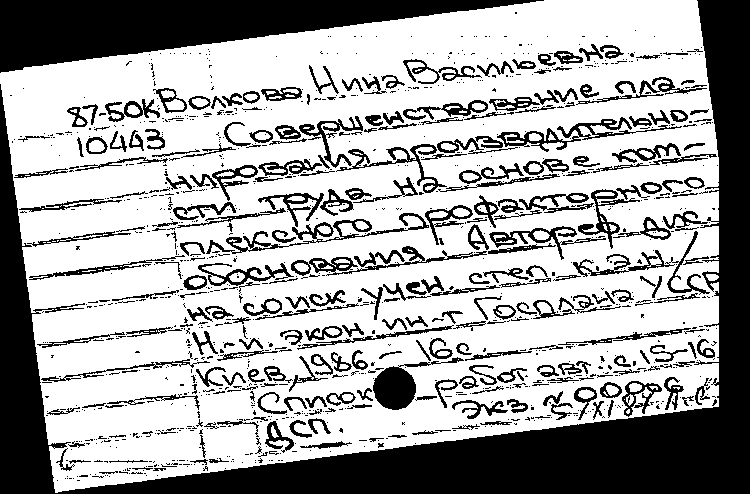 87-50К Волкова, Нина Васильевна.
10443 Совершенствование пла-
нирования производительно-
сти труда на основе ком-
плексного профакторного
обоснования: Автореф. дис.
на соиск. учен. степ. к.э.н./
Н.-и. экон. ин-т Госплана УССР
Киев, 1986.- 16с.
Список работ авт.: с.15-16
Экз. №00006
ДСП.